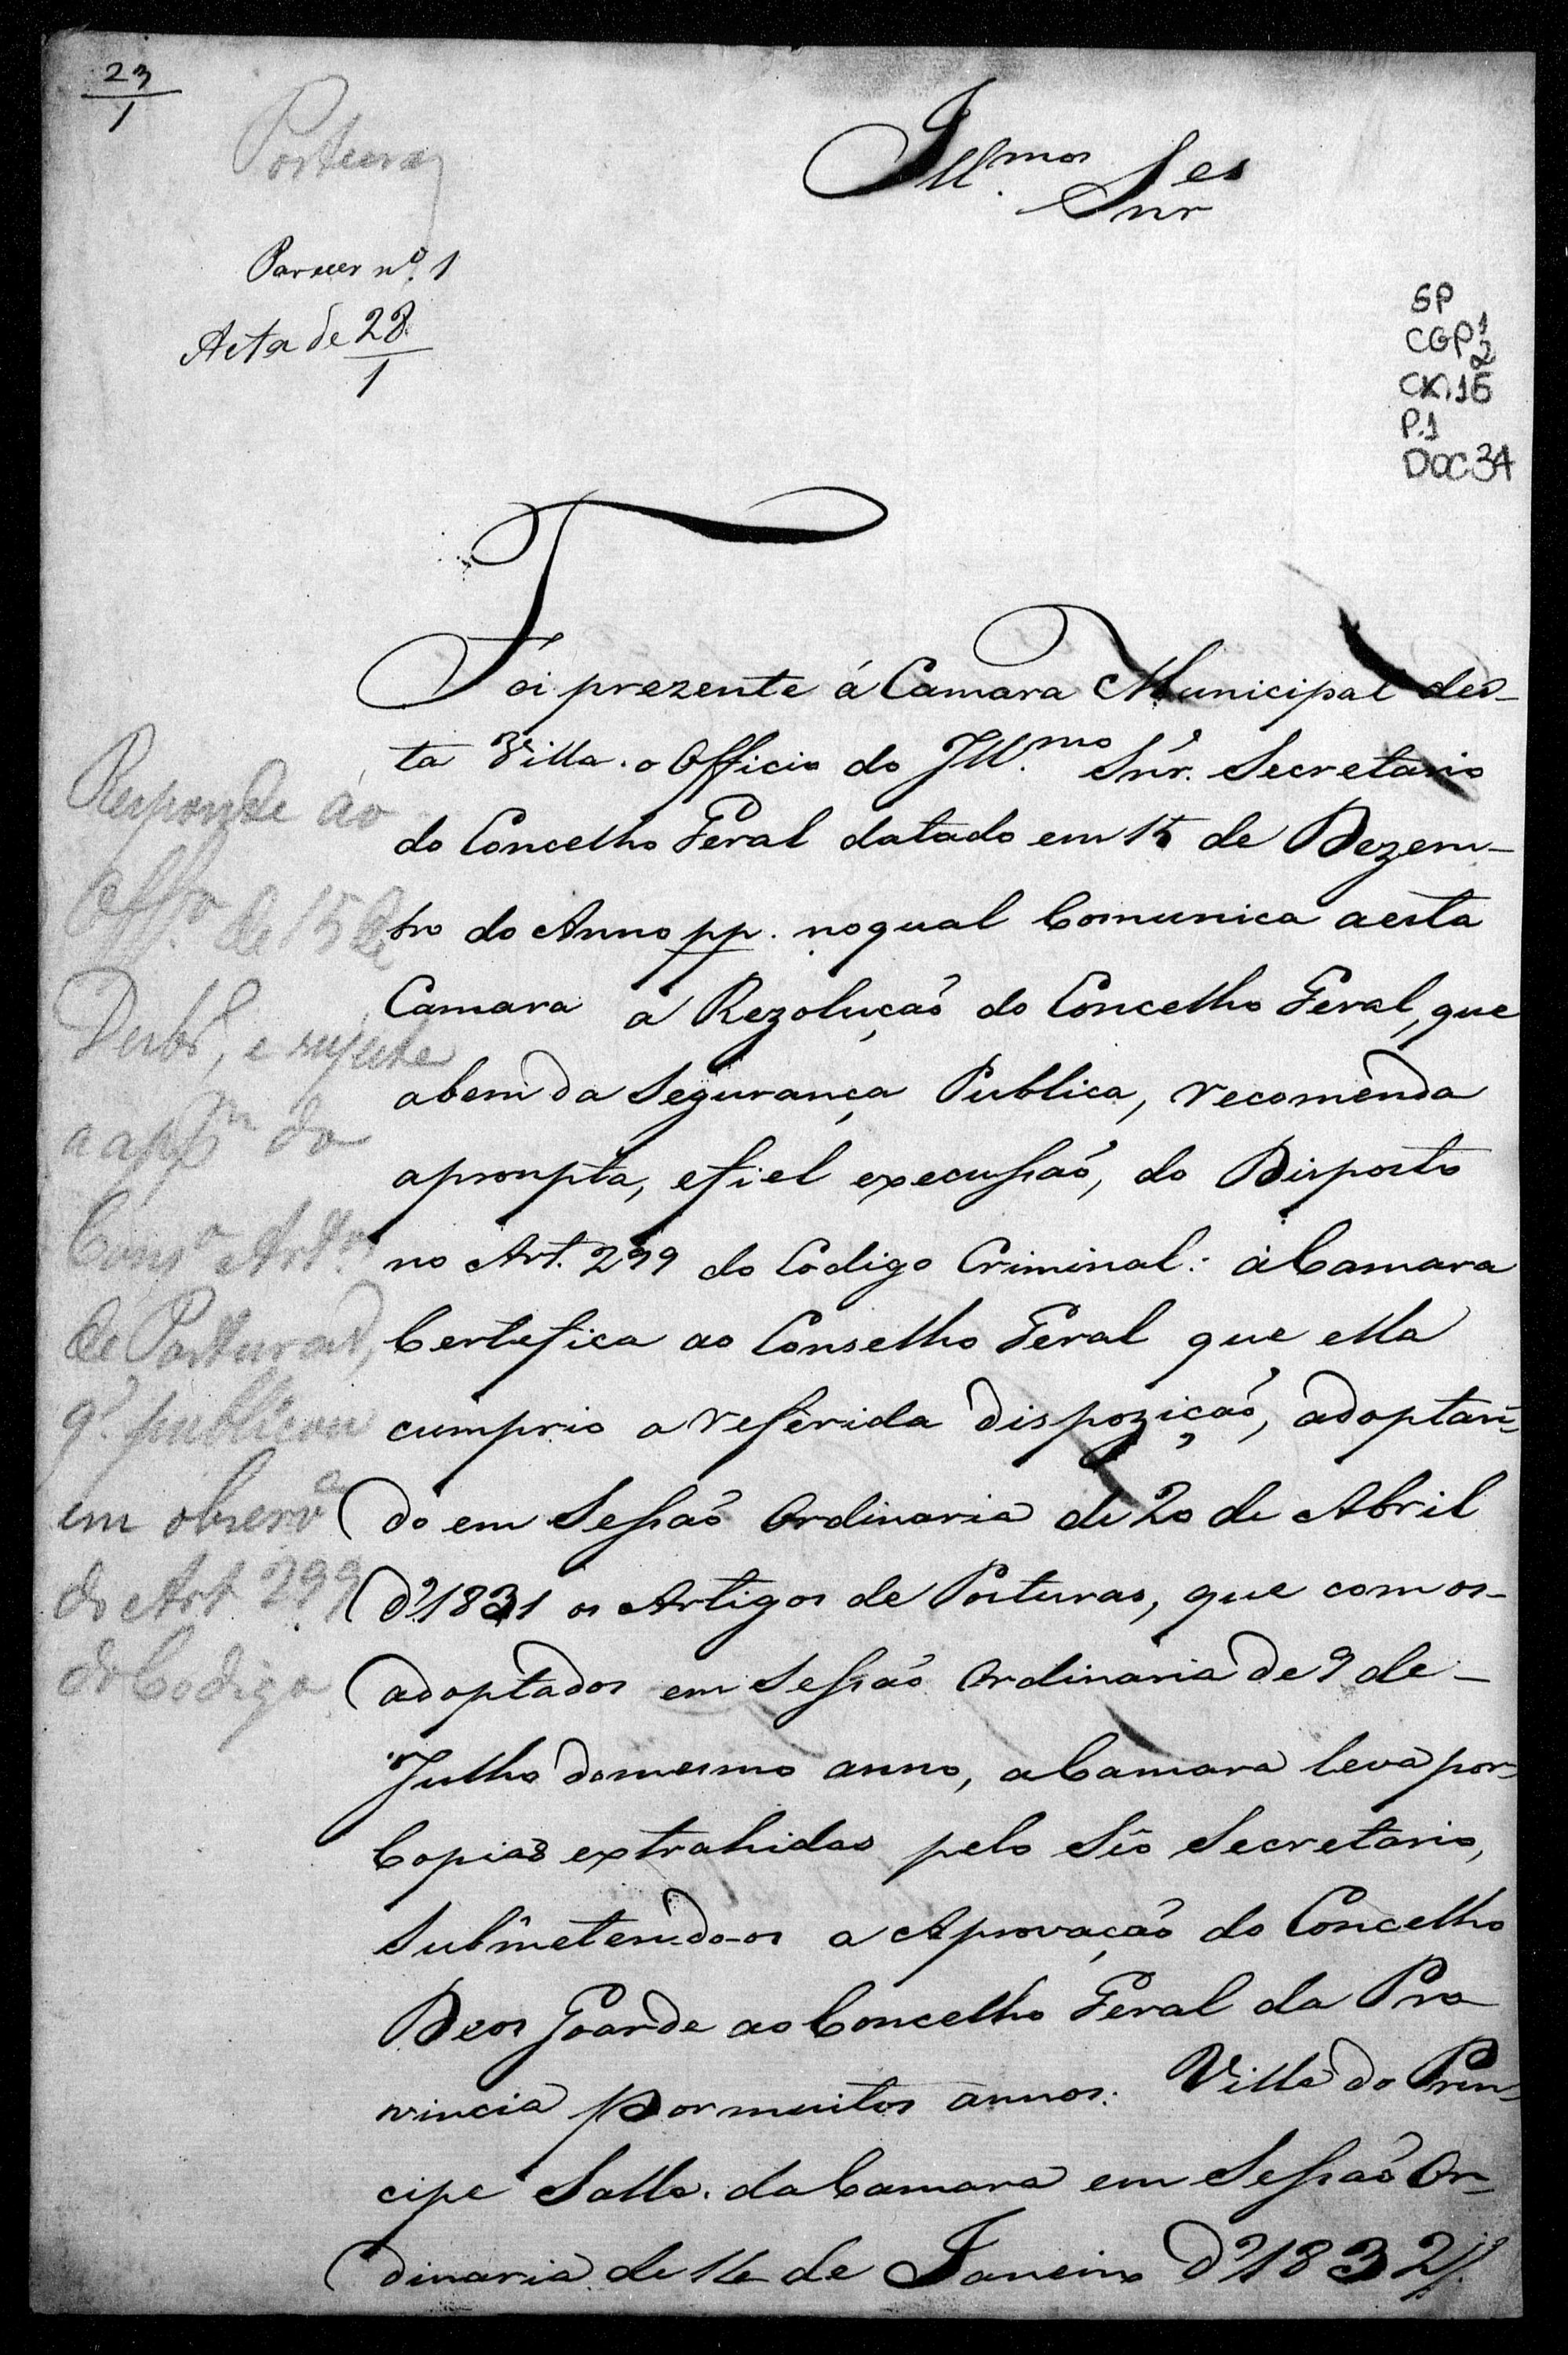 23
1
Posturas
Illmos. Snr es
Parecer nº. 1
Acta de 28
1
SP
CGP1
2
CX.15
P.1
DOC34
Foi prezente á Camara Municipal des-
ta Villa. o Officio do Illmo. Snr. Secretario
do Concelho Geral datado em 15 de Dezem-
bro do Anno pp. noqual Comunica aesta
Camara a Rezolução do Concelho Geral, que
abem da Segurança Publica, recomenda
aprompta, efiel execussaõ, do Disposto
no Art. 299 do Codigo Criminal: aCamara
Certefica ao Conselho Geral que ella
cumprio a referida dispoziçaõ, adoptan-
do em Sessaõ Ordinaria de 20 de Abril
d'1831 os Artigos de Posturas, que com os-
adoptados em Sessaõ Ordinaria de 9 de-
Julho domesmo anno, aCamara leva por
Copias extrahidas pelo Seo Secretario,
Submetendo-os a Aprovaçaõ do Concelho
Deos Goarde ao Concelho Geral da Pro
vincia por muitos annos. Villa do Prin-
cipe Salla. daCamara em Sessaõ Or-
dinaria de 16 de Janeiro d'1832//.
Responde ao
Offo. de 15 de
Dezbro, e sujeita
a appm do
Conso Artos.
de Posturas,
q. publicou
em observa
do Art 299
do Codigo